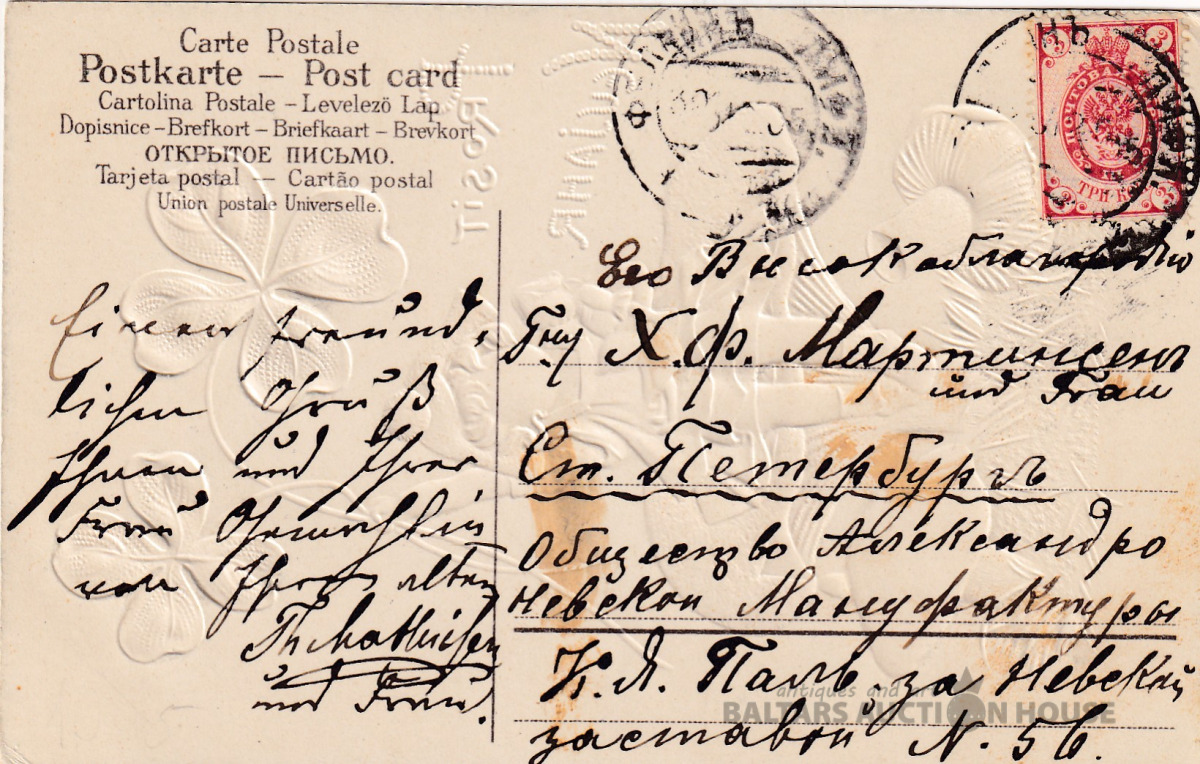 Carte Postale
Postkarte — Post card
Cartolina Postale – Levelező Lap
Dopisnice – Brefkort – Briefkaart – Brevkort
ОТКРЫТОЕ ПИСЬМО.
Tarjeta postal — Cartão postal
Union postale Universelle.
PROSIT
NEUJAHR
ФЕЛЛИНЪ
3 3
ПОЧТОВАЯ
ТРИ КОП
3 3
Einen freund-
lichen Gruß
Ihnen und Ihrer
Frau Gemahlin
von Ihrem alten
Th Mathiesen
und Frau.
Его Высокоблагородiю
Гну Х. Ф. Мартинсенъ
und Frau
Ст. Петербургъ
Общество Александро
Невской Мануфактуры
К. Я. Паль. за Невской
заставой N. 56.
antiques and art
BALTARS AUCTION HOUSE